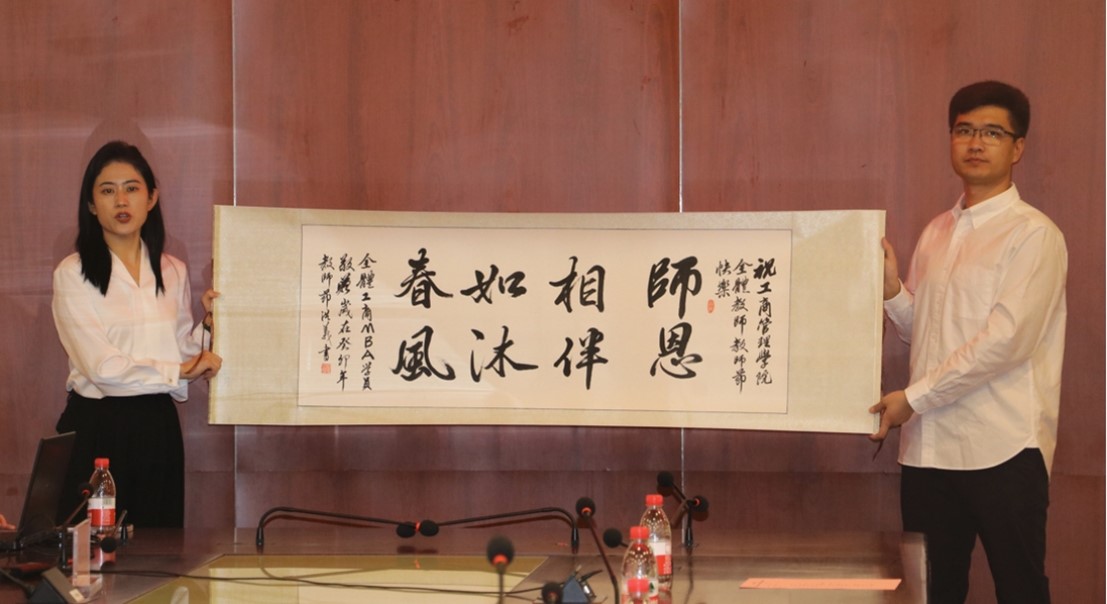 祝工商管理學院
全體教師教師節
快樂
師恩
相伴
如沐
春風
全體工商MBA学員
敬贈歲在癸卯年
教師節洪義書